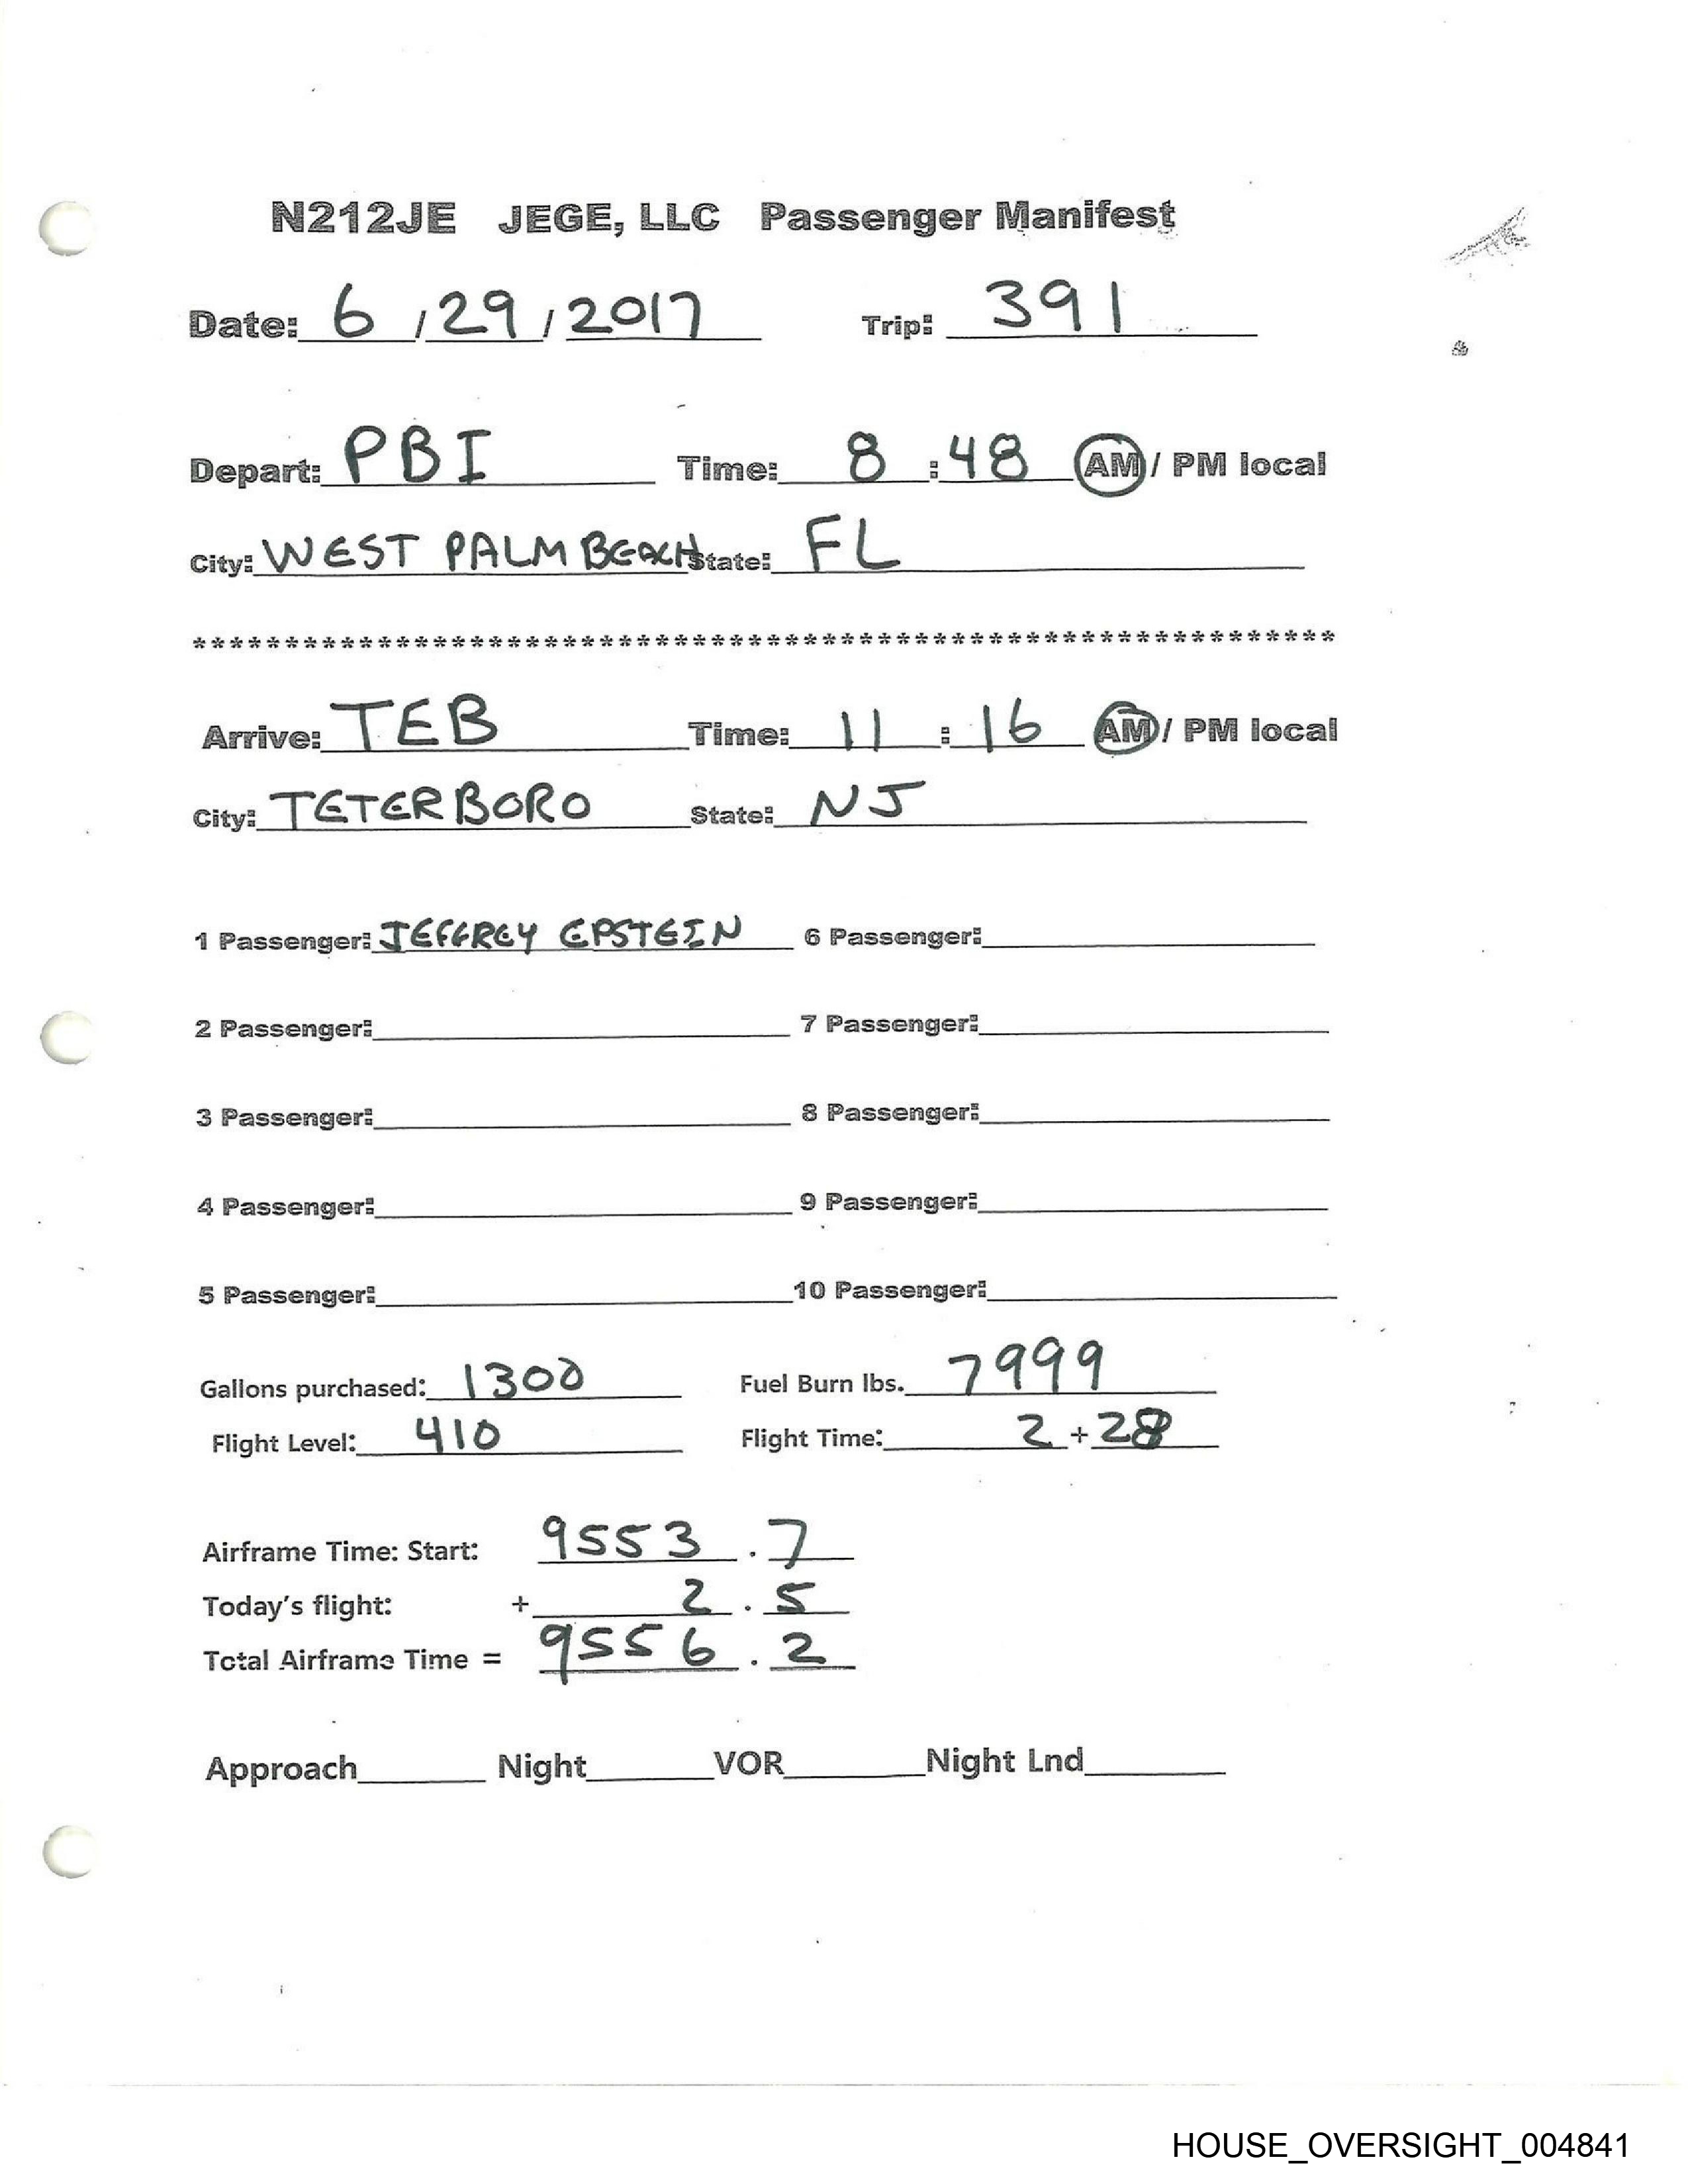 N212JE JEGE, LLC Passenger Manifest
Date: 6 / 29 / 2017 Trip: 391
Depart: PBI Time: 8 : 48 AM / PM local
City: WEST PALM BEACH State: FL
**************************************************************
Arrive: TEB Time: 11 : 16 AM / PM local
City: TETERBORO State: NJ
1 Passenger: JEFFREY EPSTEIN 6 Passenger:
2 Passenger: 7 Passenger:
3 Passenger: 8 Passenger:
4 Passenger: 9 Passenger:
5 Passenger: 10 Passenger:
Gallons purchased: 1300 Fuel Burn lbs. 7999
Flight Level: 410 Flight Time: 2 + 28
Airframe Time: Start: 9553 . 7
Today's flight: + 2 . 5
Total Airframe Time = 9556 . 2
Approach Night VOR Night Lnd
HOUSE_OVERSIGHT_004841